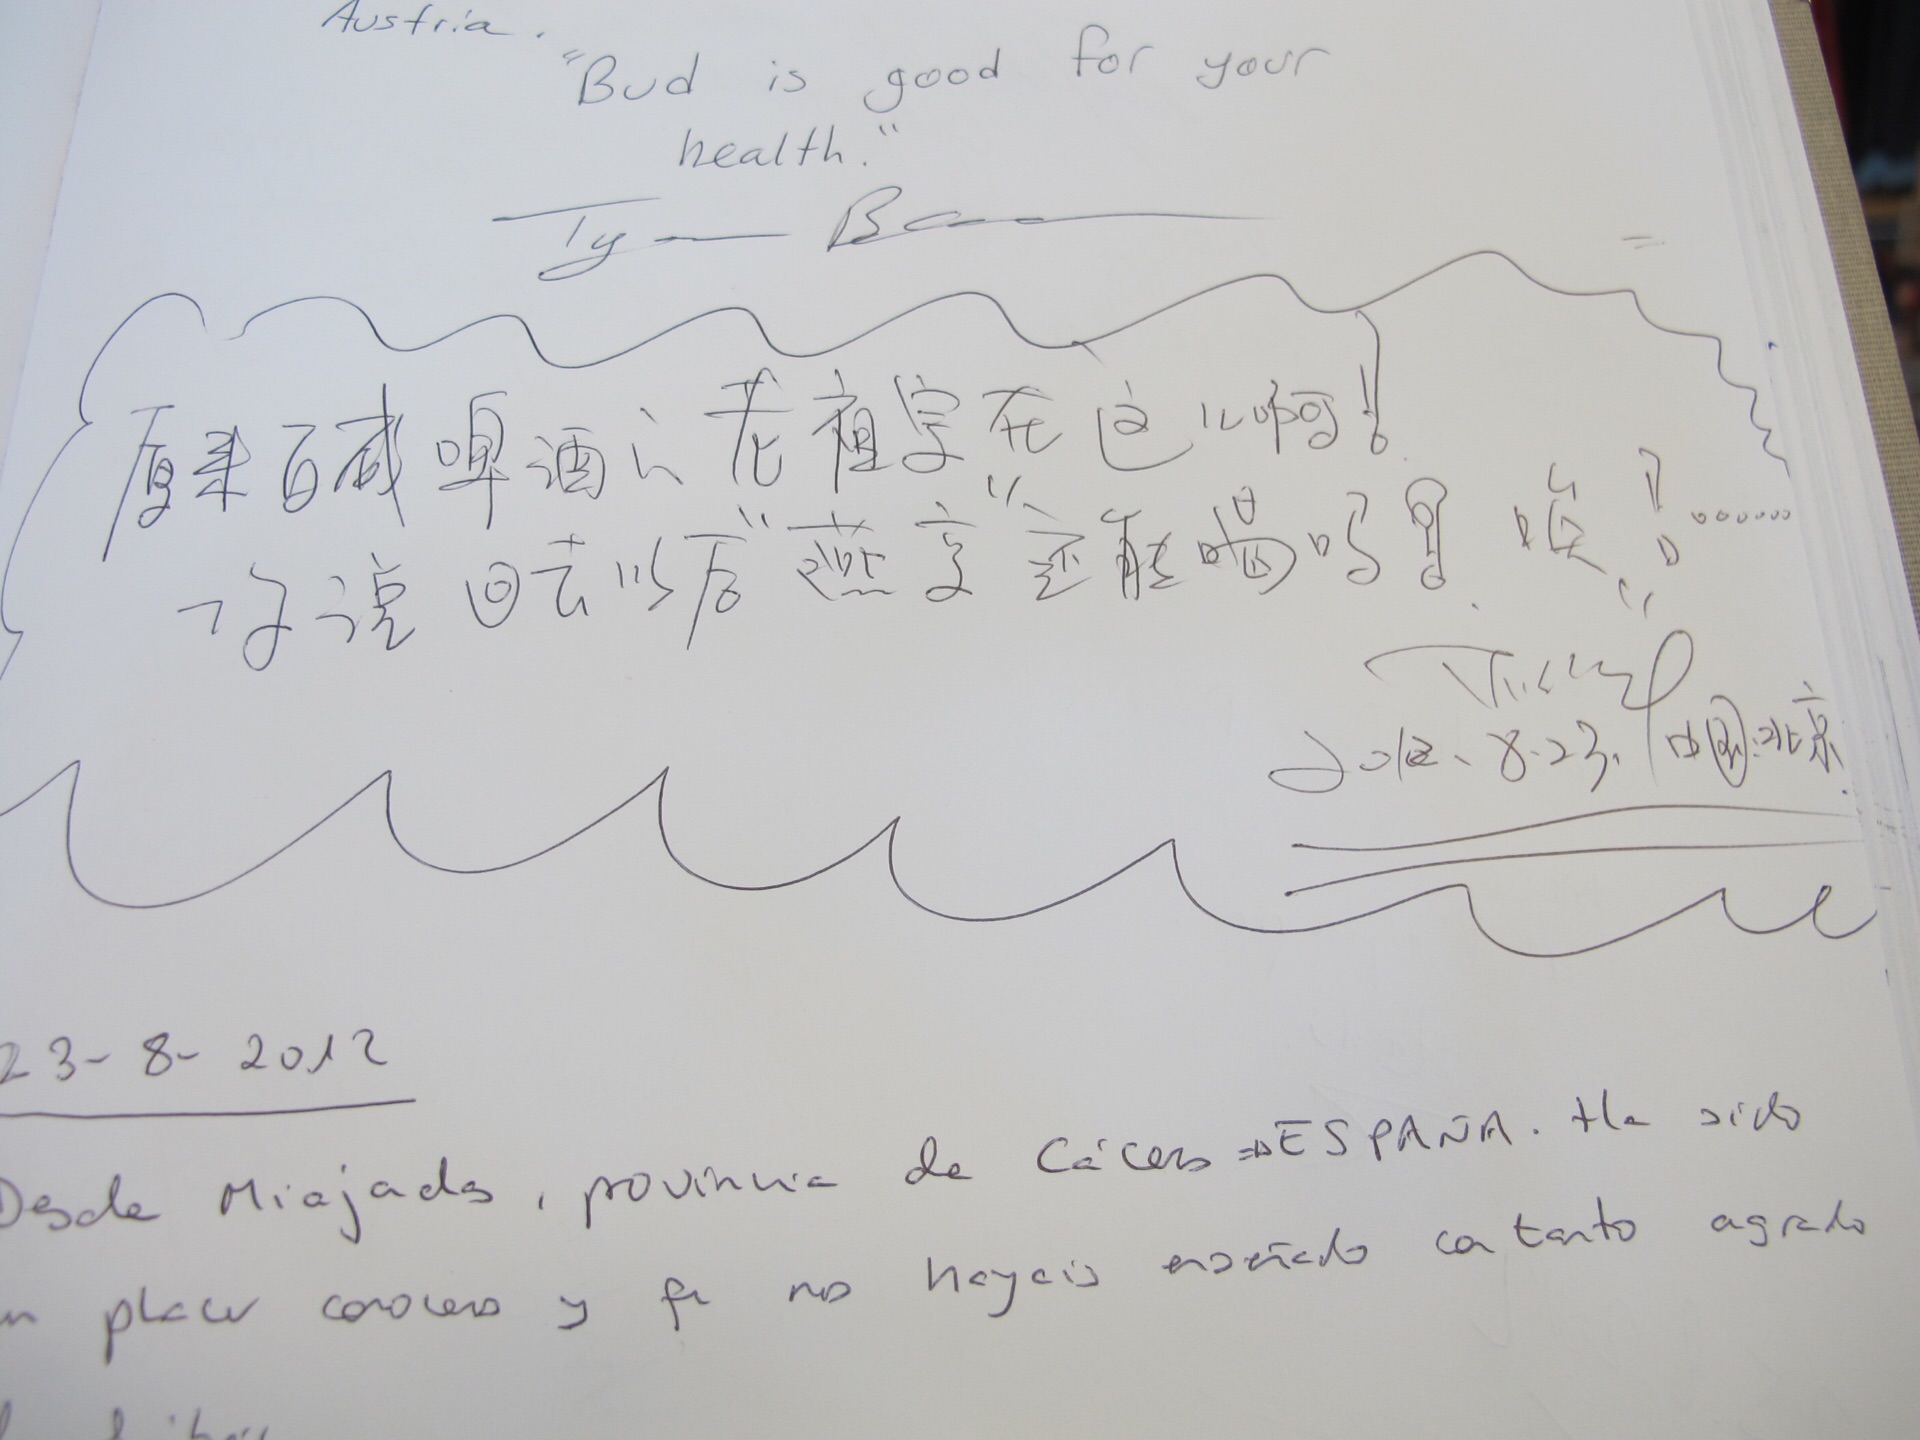 Austria.
"Bud is good for your
health."
原来百威啤酒的老祖宗在这儿啊!
你说回去以后"燕京"还能喝吗? 唉!......
2012.8.23. 中国·北京
23-8-2012
Desde Miajadas, provincia de Cáceres ⇒ ESPAÑA. Ha sido
un placer conoceros y q nos hayais enseñado con tanto agrado